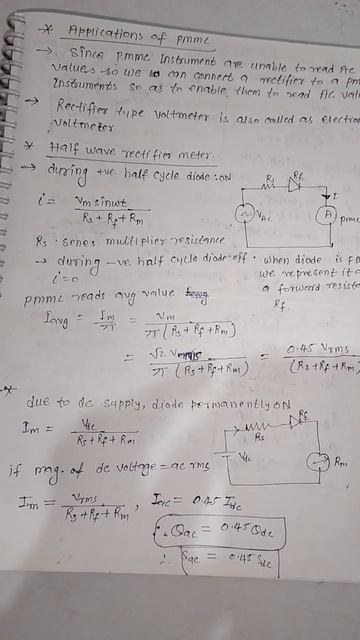 * Applications of pmmc
→ Since pmmc Instrument are unable to read Ac
values so we can connect a rectifier to a pm
Instruments so as to enable them to read Ac val
→ Rectifier type voltmeter is also called as electron
voltmeter
* Half wave rectifier meter.
→ during +ve half cycle diode: ON
i = Vm sinωt / Rs + Rf + Rm
Rs Rf I
Vac A pmmc
Rs: series multiplier resistance
→ during -ve half cycle diode: off
i = 0
• when diode is FB
we represent it
a forward resist
Rf.
pmmc reads avg value
Iavg = Im / π = Vm / π (Rs + Rf + Rm)
= √2 Vrms / π (Rs + Rf + Rm) = 0.45 Vrms / (Rs + Rf + Rm)
* due to dc supply, diode permanently ON
Im = Vdc / Rs + Rf + Rm
Rs Rf
Vdc Rm
if mag. of dc voltage = ac rms
Im = Vrms / Rs + Rf + Rm , Iac = 0.45 Idc
∴ θac = 0.45 θdc
∴ Sac = 0.45 Sdc